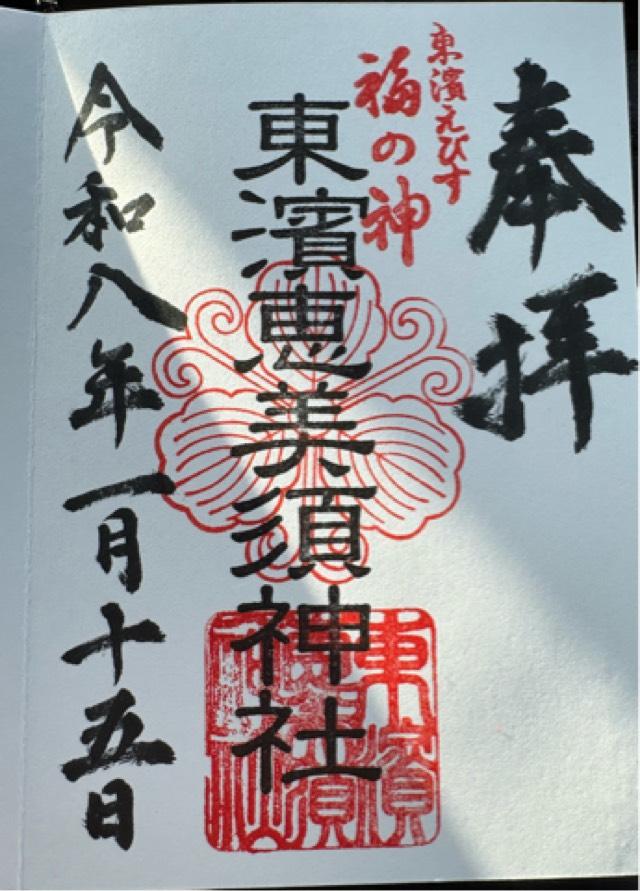 奉拝
東濱えびす
福の神
東濱恵美須神社
令和八年一月十五日